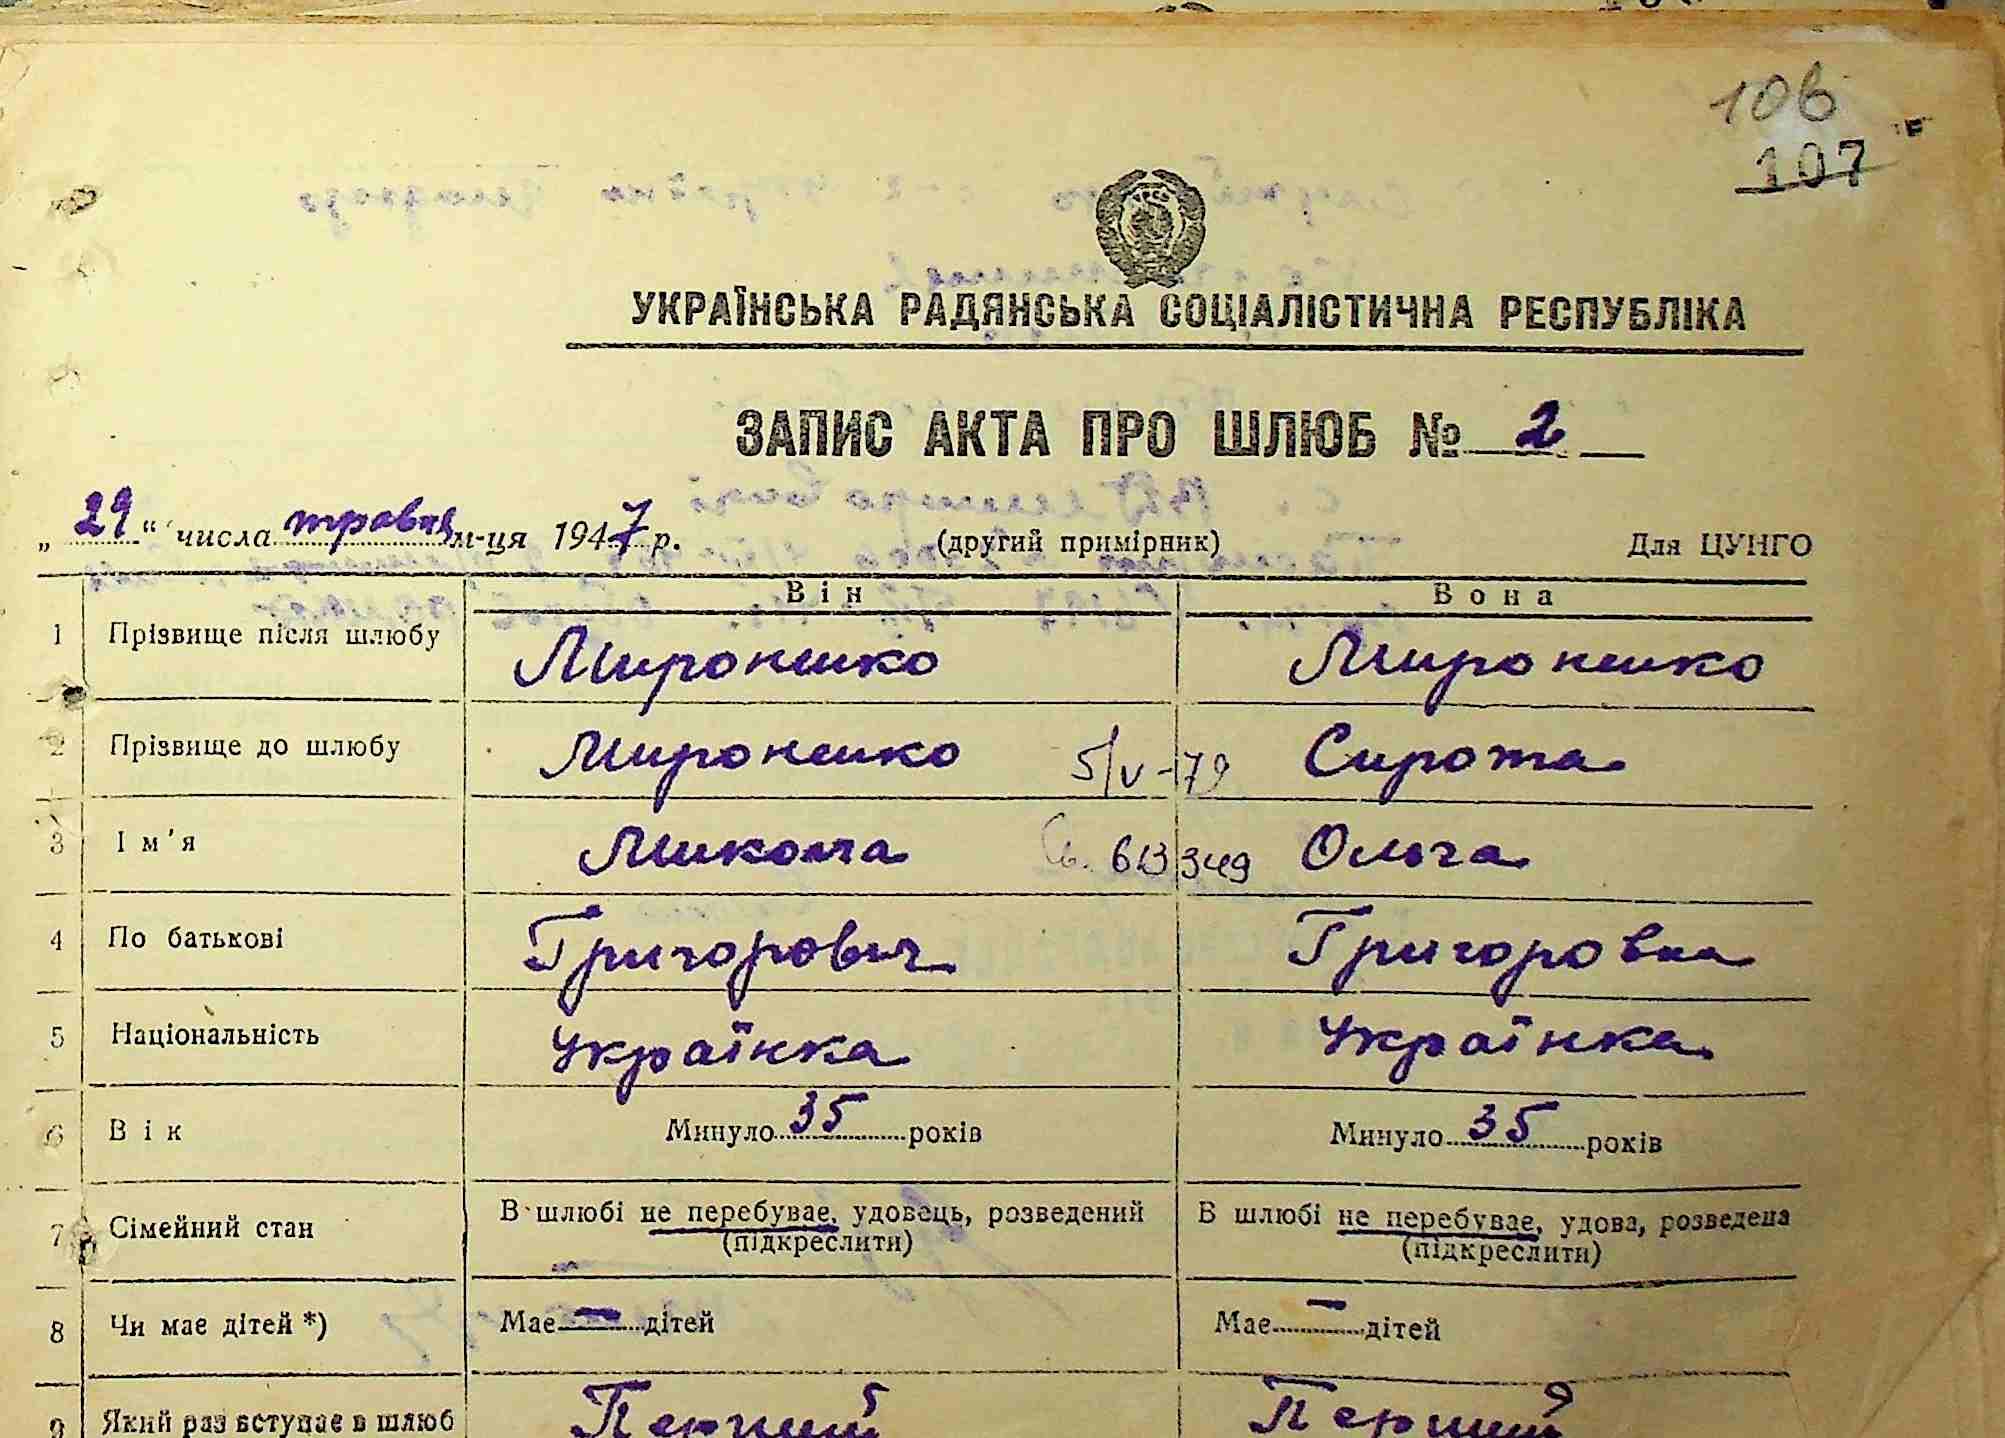 106
107
УКРАЇНСЬКА РАДЯНСЬКА СОЦІАЛІСТИЧНА РЕСПУБЛІКА
ЗАПИС АКТА ПРО ШЛЮБ № 2
„29“ числа травня м-ця 1947 р. (другий примірник) Для ЦУНГО
Він Вона
1 Прізвище після шлюбу Мироненко Мироненко
2 Прізвище до шлюбу Мироненко 5/V-79 Сирота
3 Ім'я Микола 613349 Ольга
4 По батькові Григорович Григоровна
5 Національність Українка Українка
6 Вік Минуло 35 років Минуло 35 років
7 Сімейний стан В шлюбі не перебуває, удовець, розведений В шлюбі не перебуває, удова, розведена
(підкреслити) (підкреслити)
8 Чи має дітей *) Має — дітей Має — дітей
9 Який раз вступає в шлюб Перший Перший